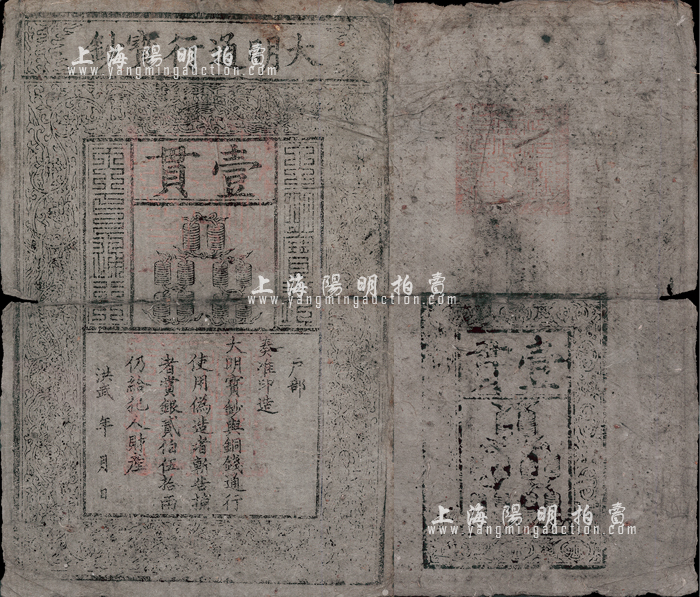 大明通行寶鈔
上海陽明拍賣
www.yangmingauction.com
壹貫
上海陽明拍賣
www.yangmingauction.com
戶部
奏准印造
大明寶鈔與銅錢通行
使用偽造者斬告捕
者賞銀貳伯伍拾兩
仍給犯人財產
洪武 年 月 日
壹貫
上海陽明拍賣
www.yangmingauction.com